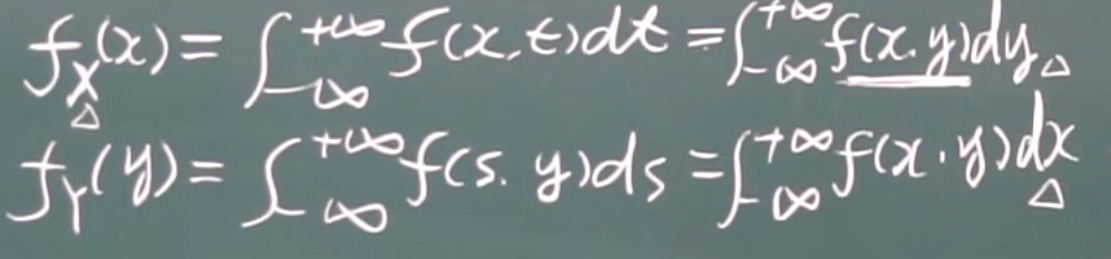 f_X(x) = ∫_{-∞}^{+∞} f(x,t)dt = ∫_{-∞}^{+∞} f(x.y)dy △
△
f_Y(y) = ∫_{-∞}^{+∞} f(s.y)ds = ∫_{-∞}^{+∞} f(x.y)dx
△